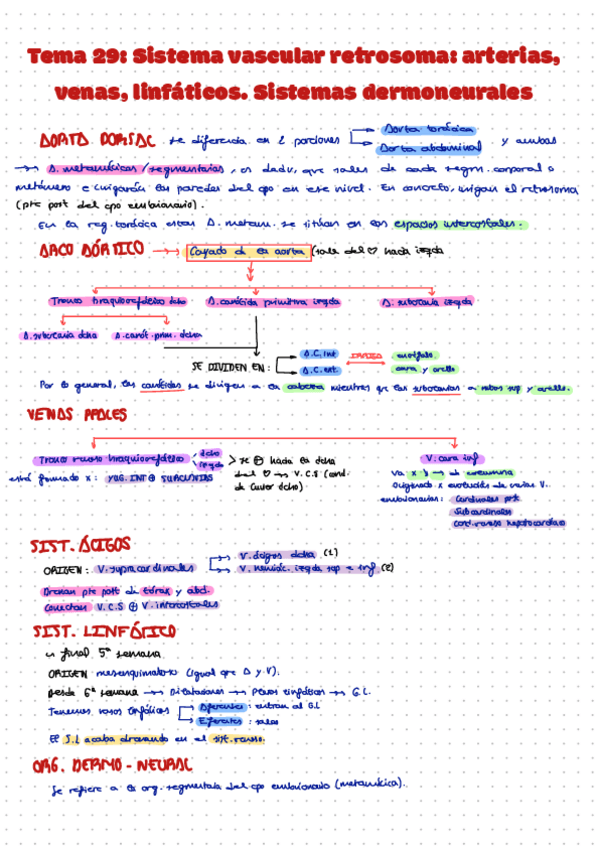 Tema 29: Sistema vascular retrosoma: arterias,
venas, linfáticos. Sistemas dermoneurales
AORTA DORSAL se diferencia en 2 porciones Aorta torácica y ambas
Aorta abdominal
A. metaméricas/segmentarias, es decir, que salen de cada segm. corporal o
metámero e irrigarán las paredes del cpo en ese nivel. En concreto, irrigan el retrosoma
(pte post del cpo embrionario).
En la reg. torácica estas A. metam. se sitúan en los espacios intercostales.
ARCO AÓRTICO Cayado de la aorta (sale del ♡ hacia izqda
Tronco braquiocefálico dcho A. carótida primitiva izqda A. subclavia izqda
A. subclavia dcha A. carót. prim. dcha
SE DIVIDEN EN: A.C. int encéfalo
A.C. ext. cara y cuello
Por lo general, las carótidas se dirigen a la cabeza mientras que las subclavias a mbos sup y cuello.
VENAS PPALES
Tronco venoso braquiocefálico dcho izqda se ⊕ hacia la dcha V. cava inf
está formado x: YUG. INT ⊕ SUBCLAVIAS del ♡ → V.C.S (cond. de Cuvier dcho) va x → columna
originada x evolución de varias V.
embrionarias: Cardinales post
Subcardinales
Cond. venoso hepatocardiaco
SIST. ÁCIGOS
ORIGEN: V. supracardinales V. ácigos dcha (1)
V. hemiác. izqda sup e inf (2)
Drenan pte post de tórax y abd.
Conectan V.C.S ⊕ V. intercostales
SIST. LINFÁTICO
final 5ª semana
ORIGEN mesenquimatoso (igual que A y V).
Desde 6ª semana → Dilataciones → Plexos linfáticos → G.L.
Tenemos vasos linfáticos Aferentes: entran al G.L
Eferentes: salen
El S.L acaba drenando en el sist. venoso.
ORG. DERMO-NEURAL
Se refiere a la org. segmentada del cpo embrionario (metamérica).